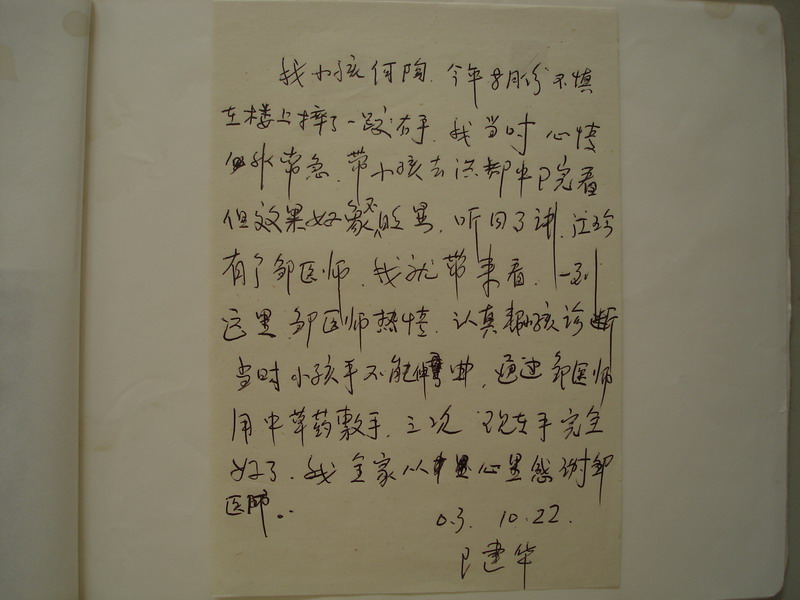 我小孩何陶.今年8月份不慎
在楼上摔了一跤右手.我当时心情
非常急.带小孩去成都中医院看
但效果好象不明显.听同了讲.
有了邹医师.我就带来看.一到
这里.邹医师热情.认真帮小孩诊断
当时小孩手不能伸弯曲.通过邹医师
用中草药敷手.三次现在手完全
好了.我全家从心里感谢邹
医师..
03.10.22.
建华